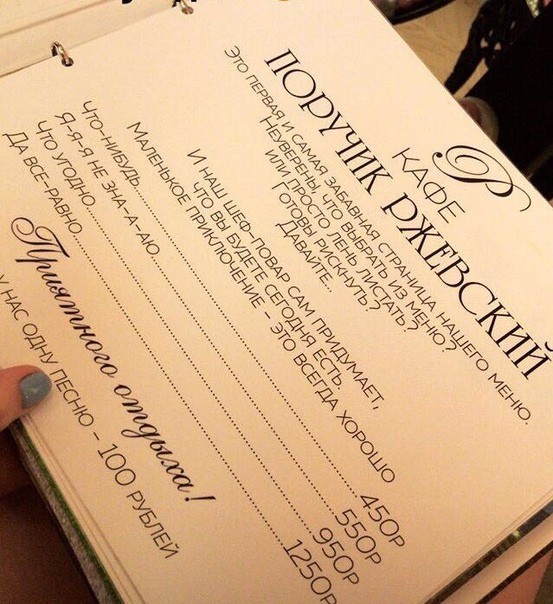 Р
КАФЕ
ПОРУЧИК РЖЕВСКИЙ
ЭТО ПЕРВАЯ И САМАЯ ЗАБАВНАЯ СТРАНИЦА НАШЕГО МЕНЮ.
НЕУВЕРЕНЫ, ЧТО ВЫБРАТЬ ИЗ МЕНЮ?
ИЛИ ПРОСТО ЛЕНЬ ЛИСТАТЬ?
ГОТОВЫ РИСКНУТЬ?
ДАВАЙТЕ..
И НАШ ШЕФ-ПОВАР САМ ПРИДУМАЕТ,
ЧТО ВЫ БУДЕТЕ СЕГОДНЯ ЕСТЬ.
МАЛЕНЬКОЕ ПРИКЛЮЧЕНИЕ – ЭТО ВСЕГДА ХОРОШО
ЧТО-НИБУДЬ........450Р
Я-Я-Я НЕ ЗНА-А-АЮ........550Р
ЧТО УГОДНО........950Р
ДА ВСЕ-РАВНО........1250Р
Приятного отдыха!
У НАС ОДНУ ПЕСНЮ – 100 РУБЛЕЙ